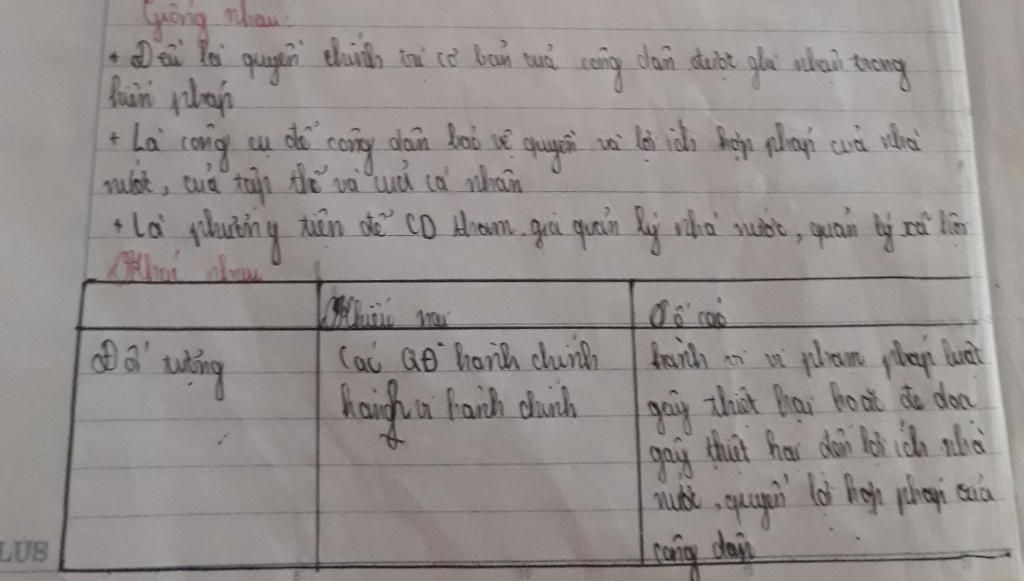 Giống nhau:
+ Đều là quyền chính trị cơ bản của công dân được ghi nhận trong
hiến pháp
+ Là công cụ để công dân bảo vệ quyền và lợi ích hợp pháp của nhà
nước, của tập thể và của cá nhân
+ Là phương tiện để CD tham gia quản lý nhà nước, quản lý xã hội
Khác nhau
Khiếu nại Tố cáo
Đối tượng
Các QĐ hành chính
hành vi hành chính
hành vi vi phạm pháp luật
gây thiệt hại hoặc đe dọa
gây thiệt hại đến lợi ích nhà
nước, quyền lợi hợp pháp của
công dân
LUS